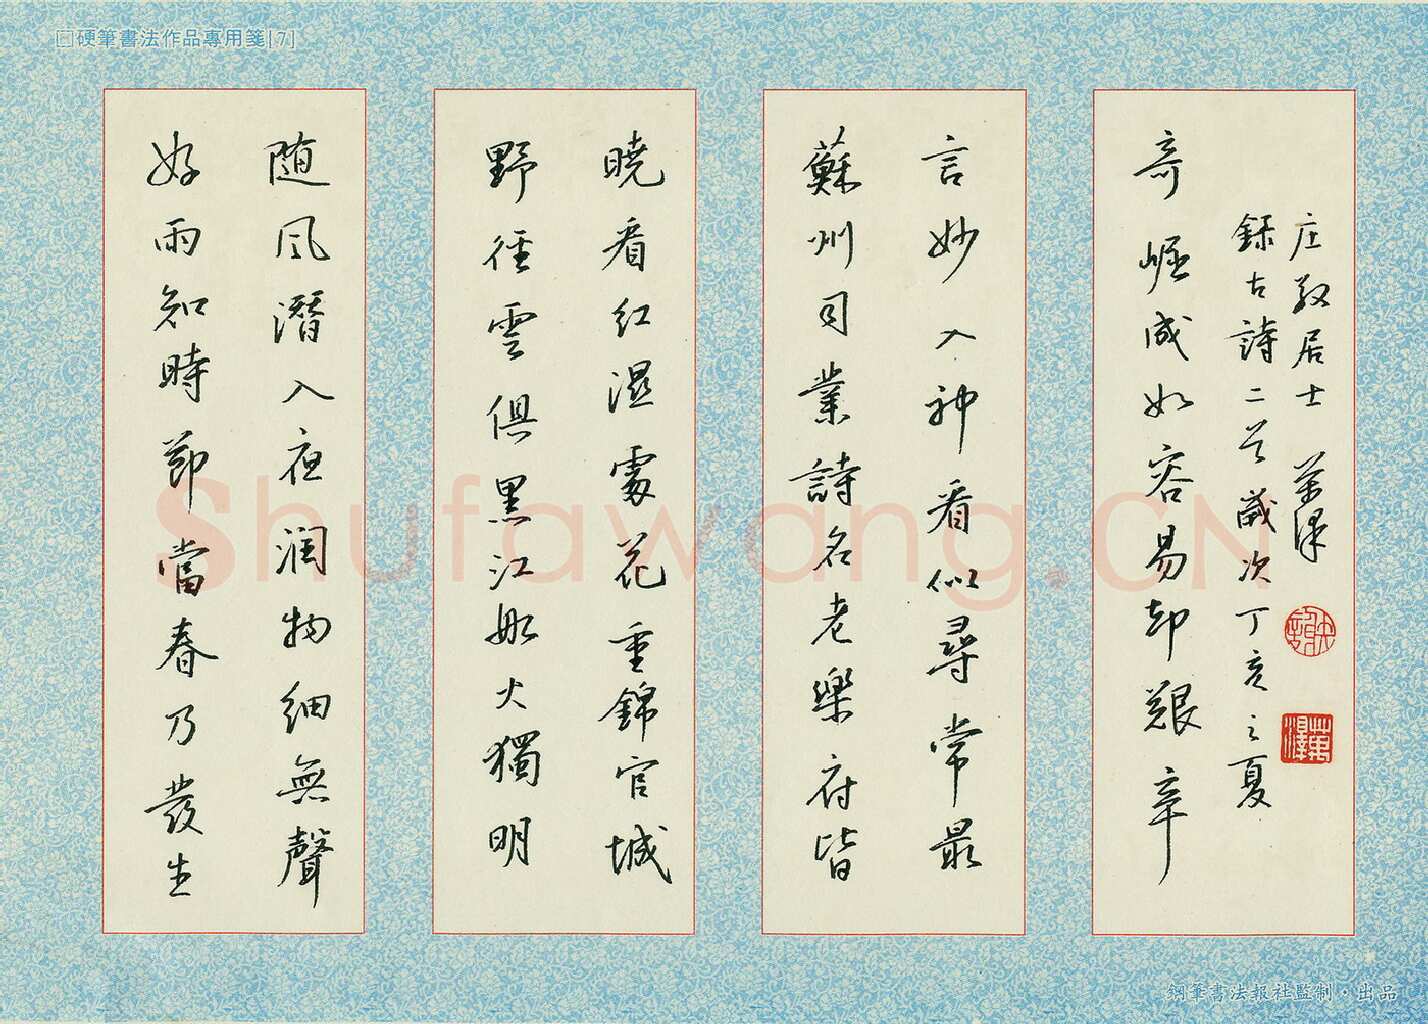 □硬筆書法作品專用箋[7]
好雨知時節當春乃發生
随風潛入夜润物细無聲
野径雲俱黑江船火獨明
曉看红濕處花重錦官城
蘇州司業詩名老樂府皆
言妙入神看似尋常最
奇崛成如容易却艱辛
録古詩二首歲次丁亥之夏
庄敬居士 萬澤
萬澤
Shufawang.CN
鋼筆書法報社監制·出品